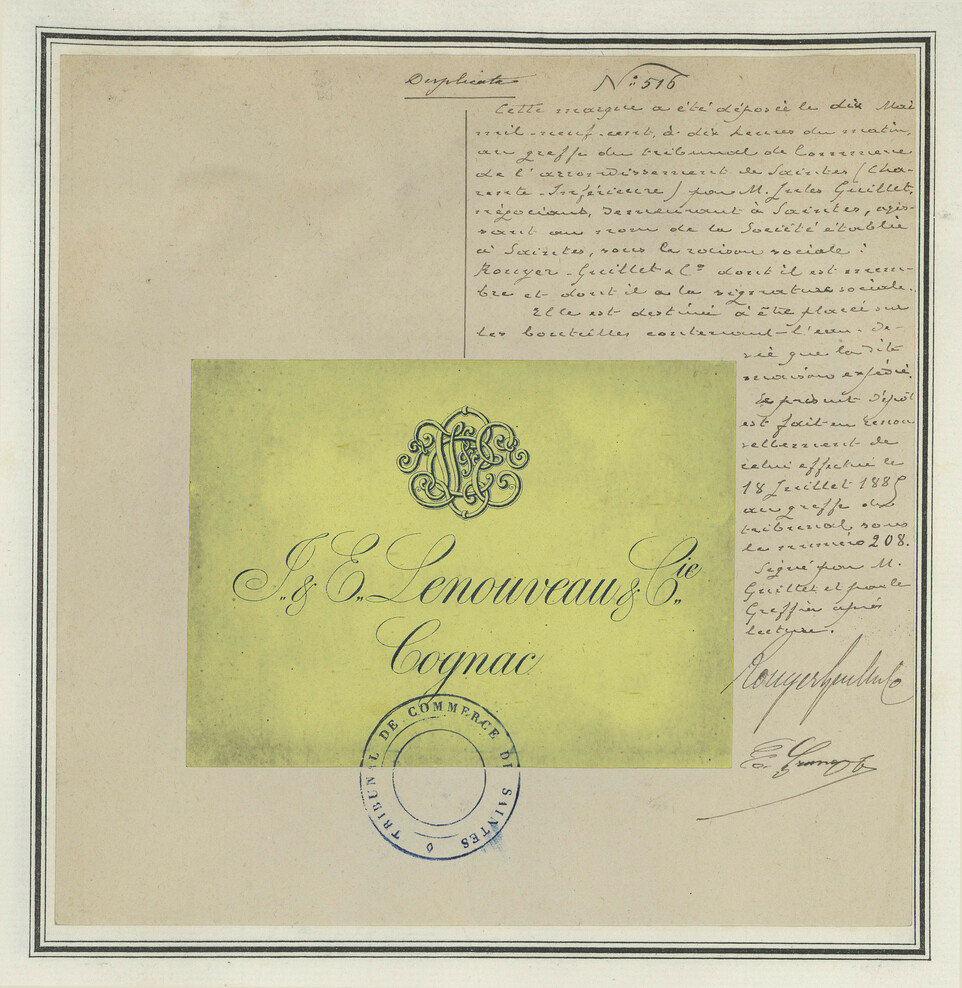 Duplicata
N° 516
Cette marque a été déposée le dix Mai
mil-neuf-cent, à dix heures du matin,
au greffe du tribunal de Commerce
de l'arrondissement de Saintes (Cha-
rente-Inférieure) par M. Jules Guillet,
négociant, demeurant à Saintes, agis-
sant au nom de la Société établie
à Saintes, sous la raison sociale :
Rouyer-Guillet & Cie dont il est mem-
bre et dont il a la signature sociale.
Elle est destinée à être placée sur
les bouteilles contenant l'eau-de-
vie que la dite
maison expédie.
Le présent dépôt
est fait en renou
vellement de
celui effectué le
18 Juillet 1885
au greffe du
tribunal sous
le numéro 208.
Signé par M.
Guillet et par le
Greffier après
lecture.
Rouyer Guillet & Co
J. & E. Lenouveau & Cie
Cognac
TRIBUNAL DE COMMERCE DE SAINTES